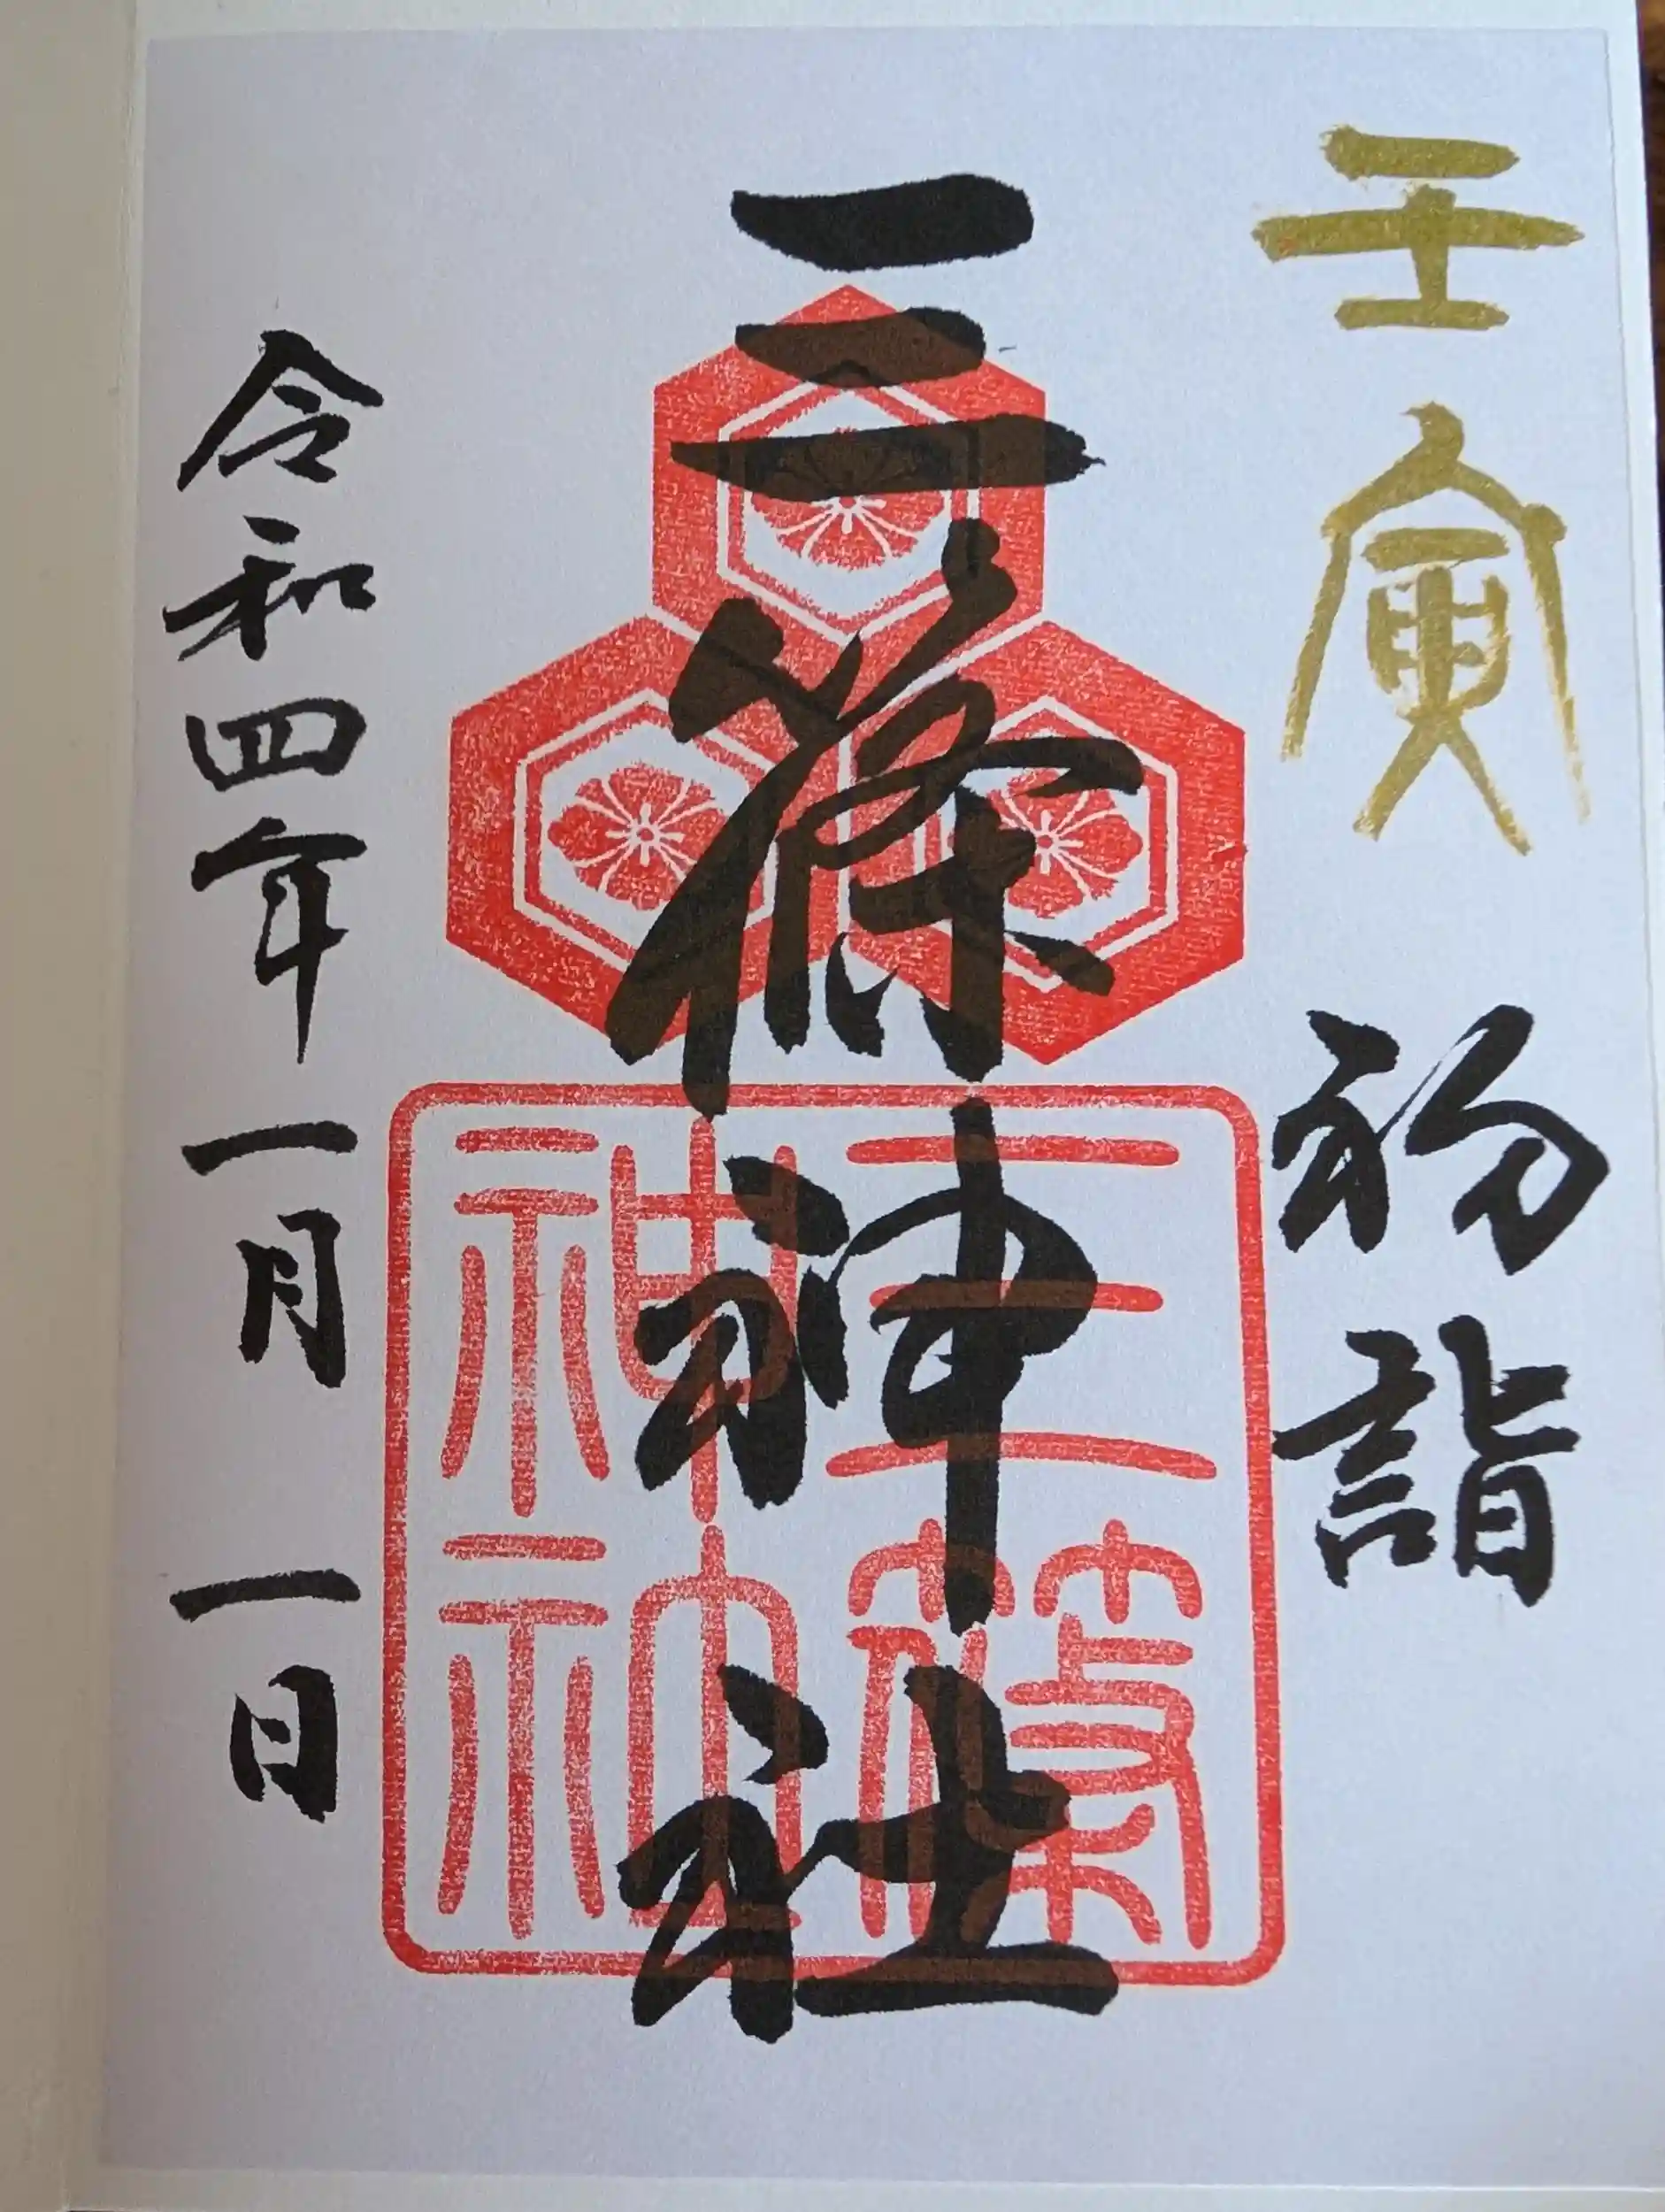 壬寅 初詣
三篠神社
令和四年一月一日
三篠
神社